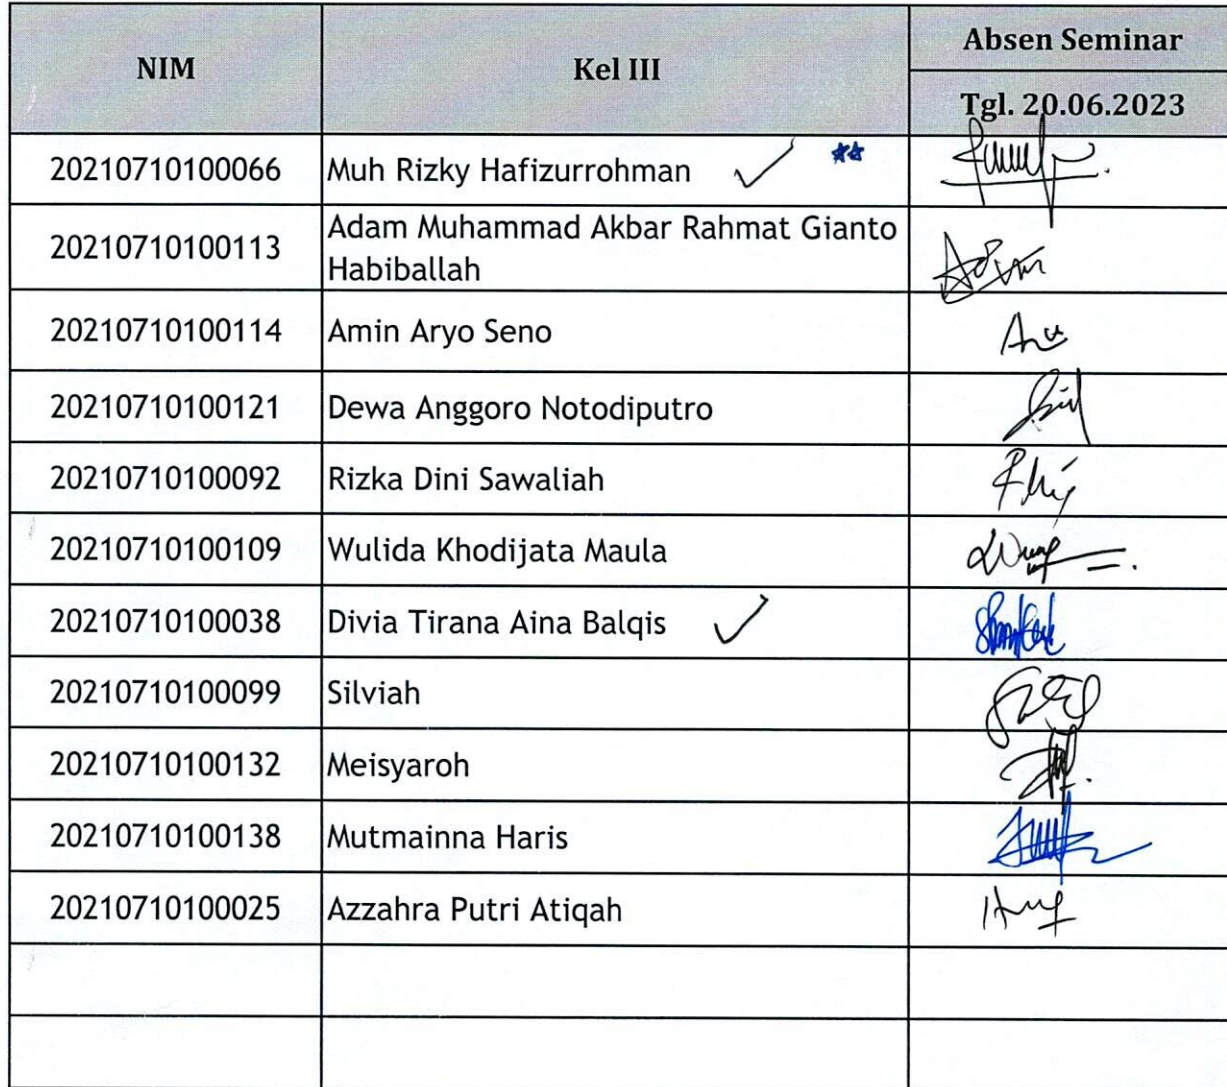 NIM
Kel III
Absen Seminar
Tgl. 20.06.2023
20210710100066 Muh Rizky Hafizurrohman
20210710100113 Adam Muhammad Akbar Rahmat Gianto
Habiballah
20210710100114 Amin Aryo Seno
20210710100121 Dewa Anggoro Notodiputro
20210710100092 Rizka Dini Sawaliah
20210710100109 Wulida Khodijata Maula
20210710100038 Divia Tirana Aina Balqis
20210710100099 Silviah
20210710100132 Meisyaroh
20210710100138 Mutmainna Haris
20210710100025 Azzahra Putri Atiqah